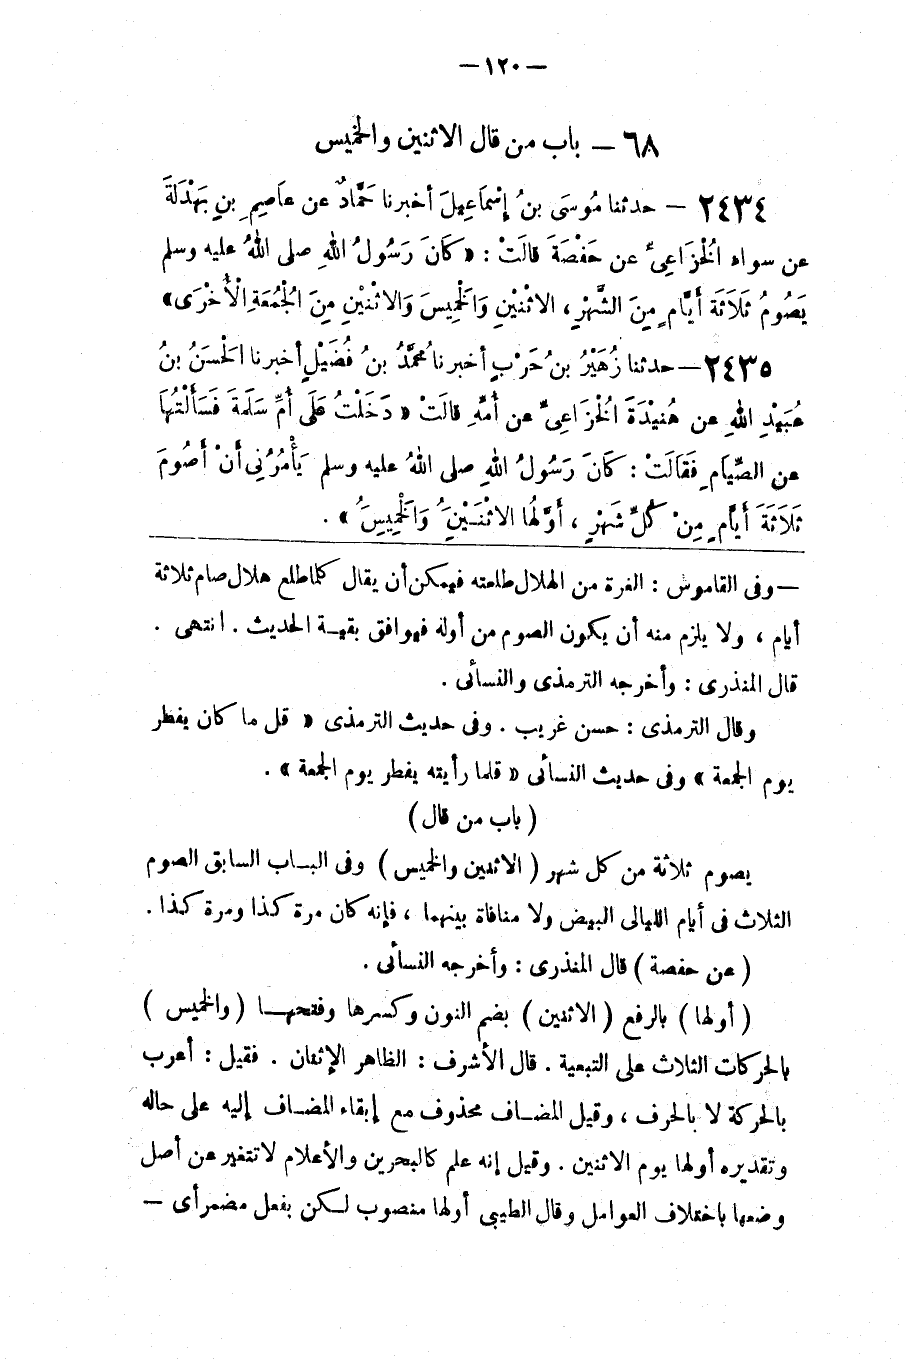 — ١٢٠ —
٦٨ — باب من قال الاثنين والخميس
٢٤٣٤ — حدثنا مُوسَى بنُ إِسْمَاعِيلَ أخبرنا حَمَّادٌ عن عَاصِمِ بنِ بَهْدَلَةَ
عن سواء الْخُزَاعِىِّ عن حَفْصَةَ قالَتْ : « كَانَ رَسُولُ اللهِ صلى اللهُ عليه وسلم
يَصُومُ ثَلَاثَةَ أَيَّامٍ مِنَ الشَّهْرِ ، الاثْنَيْنِ وَالْخَمِيسَ وَالاثْنَيْنِ مِنَ الْجُمُعَةِ الْأُخْرَى »
٢٤٣٥ — حدثنا زُهَيْرُ بنُ حَرْبٍ أخبرنا مُحمَّدُ بنُ فُضَيْلٍ أخبرنا الْحَسَنُ بنُ
عُبَيْدِ اللهِ عن هُنَيْدَةَ الْخُزَاعِىِّ عن أُمِّهِ قالَتْ « دَخَلْتُ عَلَى أُمِّ سَلَمَةَ فَسَأَلْتُهَا
عن الصِّيَامِ فَقَالَتْ : كَانَ رَسُولُ اللهِ صلى اللهُ عليه وسلم يَأْمُرُنِى أَنْ أَصُومَ
ثَلَاثَةَ أَيَّامٍ مِنْ كُلِّ شَهْرٍ ، أَوَّلُهَا الاثْنَيْنِ وَالْخَمِيسِ » .
— وفى القاموس : الغرة من الهلال طلعته فيمكن أن يقال كلما طلع هلال صام ثلاثة
أيام ، ولا يلزم منه أن يكون الصوم من أوله فيوافق بقية الحديث . انتهى .
قال المنذرى : وأخرجه الترمذى والنسائى .
وقال الترمذى : حسن غريب . وفى حديث الترمذى « قل ما كان يفطر
يوم الجمعة » وفى حديث النسائى « قلما رأيته يفطر يوم الجمعة » .
( باب من قال )
يصوم ثلاثة من كل شهر ( الاثنين والخميس ) وفى الباب السابق الصوم
الثلاث فى أيام الليالى البيض ولا منافاة بينهما ، فإنه كان مرة كذا ومرة كذا .
( عن حفصة ) قال المنذرى : وأخرجه النسائى .
( أولها ) بالرفع ( الاثنين ) بضم النون وكسرها وفتحها ( والخميس )
بالحركات الثلاث على التبعية . قال الأشرف : الظاهر الإثنان . فقيل : أعرب
بالحركة لا بالحرف ، وقيل المضاف محذوف مع إبقاء المضاف إليه على حاله
وتقديره أولها يوم الاثنين . وقيل إنه علم كالبحرين والأعلام لا تتغير عن أصل
وضعها باختلاف العوامل وقال الطيبى أولها منصوب لكن بفعل مضمر أى —